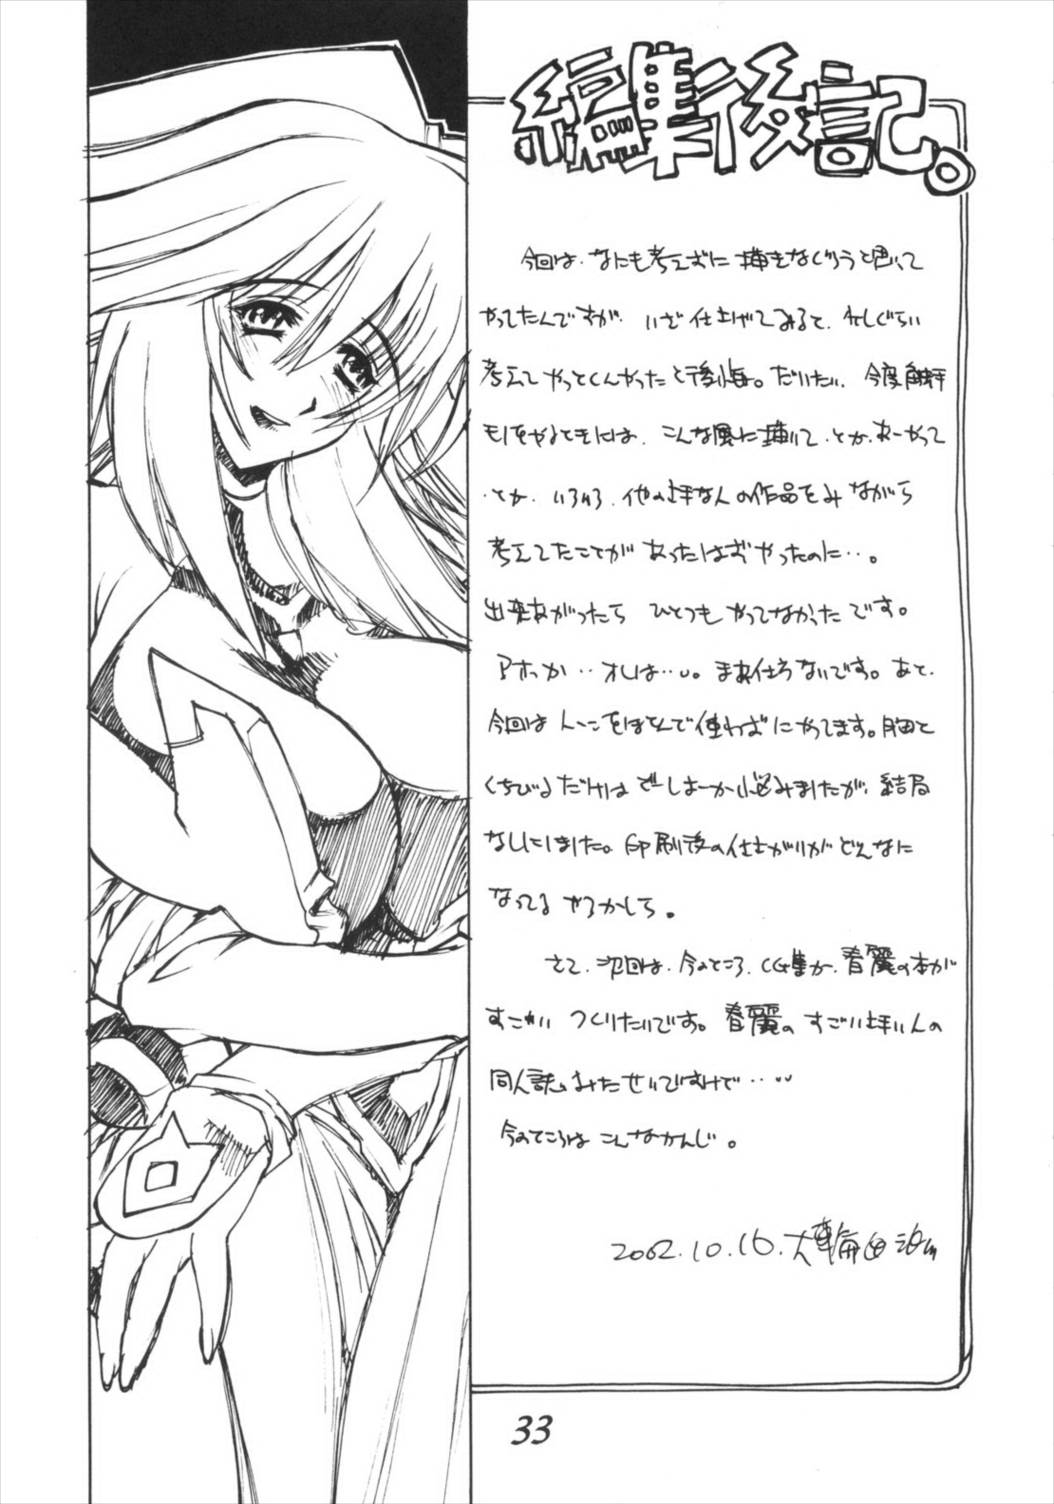 編集後記。
今回は、なにも考えずに描きなぐろうと思って
やってたんですが、いざ仕上げてみると、もしぐらい
考えてやっとくんやったと後悔。だいたい、今度触手
ものをやるときには、こんな風に描いて、とか、あーやって
とか、いろいろ、他の上手な人の作品をみながら
考えてたことがあったはずやったのに…。
出来あがったら ひとつも やってなかったです。
アホっか‥オレは…。まあ仕方ないです。あと、
今回はトーンをほとんど使わずにやってます。胸と
くちびるだけはどーしよーか悩みましたが、結局
なしにしました。印刷後の仕上がりがどんなに
なってるやろかしら。
さて、次回は、今のところ、CG集か、春麗の本が
すこかい つくりたいです。春麗のすごい上手い人の
同人誌みたせいですけど…
今のところはこんなかんじ。
2002.10.16.大輪田泊
33